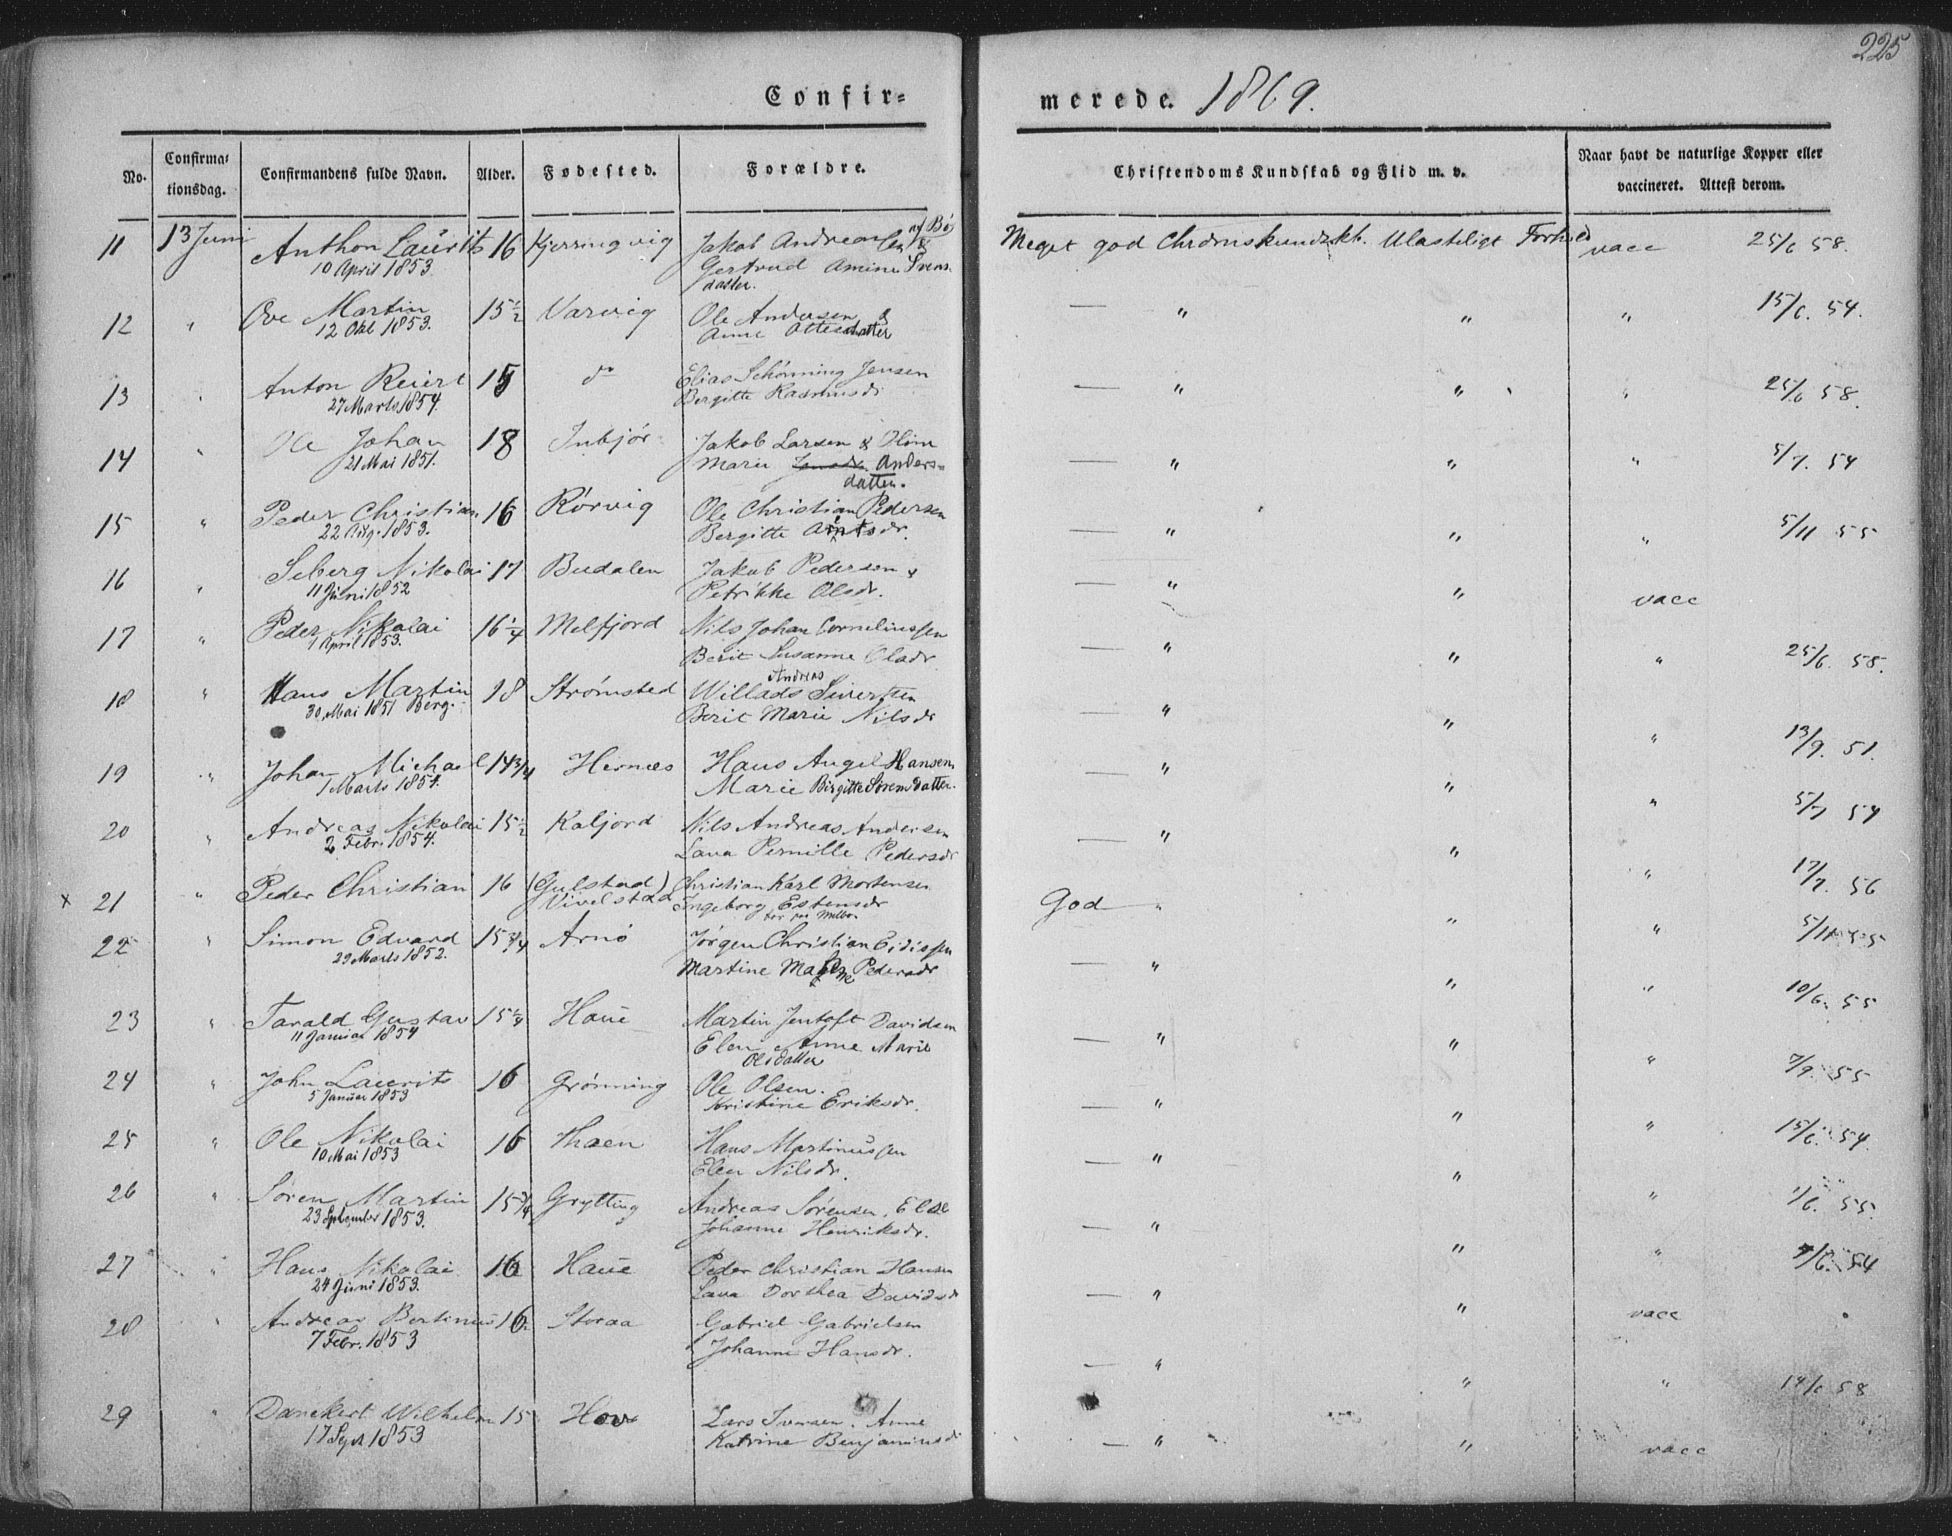 225
Confir=
merede. 1869.
No.
Confirma=
tionsdag.
Confirmandens fulde Navn.
Alder.
Fødested.
Forældre.
Christendoms Kundskab og Flid m. v.
Naar havt de naturlige Kopper eller
vaccineret. Attest derom.
11 13 Juni Anthon Laurits 16 Kjerringvig Jakob Andreassen &
10 April 1853. Gertrud Amine Svens-
datter.
Meget god Chrdmskundskb. Ulasteligt Forhold vacc 25/6 58.
12 " Ove Martin 15½ Varvig Ole Andersen &
12 Okt 1853. Anne Ottesdatter
— " " " 15/6. 54.
13 " Anton Reiert 15 do Elias Schønning Jensen
27 Marts 1854. Bergitte Rasmusdr
— " " " 25/6 58.
14 " Ole Johan 18 Inbjør Jakob Larsen &
21 Mai 1851. Marie Anders=
datter.
— " " " 5/7. 54
15 " Peder Christian 16 Rørvig Ole Christian Pedersen
22 Aug. 1853. Bergitte Arntsdr.
— " " " 5/11 55
16 " Seberg Nikolai 17 Budalen Jakob Pedersen &
11 Juni 1852 Petrikke Olsdr.
— " " vacc
17 " Peder Nikolai 16¼ Melfjord Nils Johan Corneliussen
1 April 1853. Berit Susanne Olsdr
— " " " 25/6. 58.
18 " Hans Martin 18 Strømsted Willads Andreas Sivertsen
30 Mai 1851 Berg. Berit Marie Nilsdr
— " " " 13/9. 51.
19 " Johan Michael 14¾ Hernes Hans Angel Hansen
1 Marts 1854. Marie Birgitte Sørensdatter.
— " " " 5/7 54
20 " Andreas Nikolai 15½ Kaljord Nils Andreas Andersen
2 Febr. 1854. Lava Pernille Pedersdr
— " " " 17/7. 56
x 21 " Peder Christian 16 (Gulstad) Christian Karl Mortensen
Vivelstad Ingeborg Estensdr
God " " " 5/11 55
22 " Simon Edvard 15¾ Arnø Jørgen Christian Eidissen
29 Marts 1852. Martine Pedersdr
— " " " 10/6. 55
23 " Tarald Gustav 15¼ Haue Martin Jentoft Davidsen
11 Januar 1854 Elen Anne Marie
Olsdatter
— " " " 7/9. 55
24 " John Laurits 16 Grønning Ole Olsen.
5 Januar 1853 Kristine Eriksdr.
— " " " 15/6. 54.
25 " Ole Nikolai 16 Thaen Hans Martinussen
10 Mai 1853 Elen Nilsdr.
— " " " 1/6. 55.
26 " Søren Martin 15¾ Grytting Andreas Sørensen, Else
23 September 1853. Johanne Henriksdr.
— " " " 7/6. 54
27 " Hans Nikolai 16 Haue Peder Christian Hansen
24 Juni 1853. Lava Dorthea Davidsdr
— " " vacc
28 " Andreas Bertinus 16 Storaa Gabriel Gabrielsen
7 Febr. 1853 Johanne Hansdr.
— " " " 14/6 58
29 " Danckert Wilhelm 15 Hov Lars Iversen. Anne
17 Sept 1853 Katrine Benjaminsdr
— " " vacc